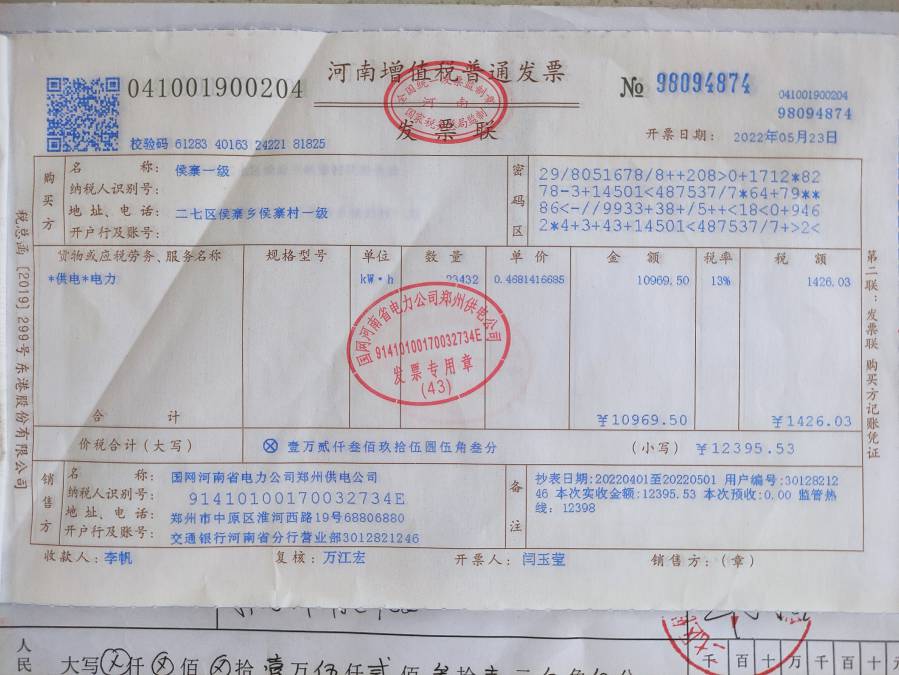 河南增值税普通发票
发票联
041001900204
№ 98094874
041001900204
98094874
校验码 61283 40163 24221 81825
开票日期： 2022年05月23日
全国统一发票监制章
河南
国家税务总局监制
税总函 [2019] 299号 东港股份有限公司
购买方
名称： 侯寨一级
纳税人识别号：
地址、电话： 二七区侯寨乡侯寨村一级
开户行及账号：
密码区
29/8051678/8++208>0+1712*82
78-3+14501<487537/7*64+79**
86<-//9933+38+/5++<18<0+946
2*4+3+43+14501<487537/7+>2<
货物或应税劳务、服务名称 规格型号 单位 数量 单价 金额 税率 税额
*供电*电力 kW·h 23432 0.4681416685 10969.50 13% 1426.03
国网河南省电力公司郑州供电公司
91410100170032734E
发票专用章
(43)
合计 ￥10969.50 ￥1426.03
价税合计（大写） ⊗ 壹万贰仟叁佰玖拾伍圆伍角叁分 （小写） ￥12395.53
销售方
名称： 国网河南省电力公司郑州供电公司
纳税人识别号： 91410100170032734E
地址、电话： 郑州市中原区淮河西路19号68806880
开户行及账号： 交通银行河南省分行营业部3012821246
备注
抄表日期:20220401至20220501 用户编号:30128212
46 本次实收金额:12395.53 本次预收:0.00 监管热
线：12398
收款人：李帆 复核：万江宏 开票人：闫玉莹 销售方：（章）
第二联：发票联 购买方记账凭证
人民
大写 仟 佰 拾 壹万伍仟贰佰
千百十万千百十元